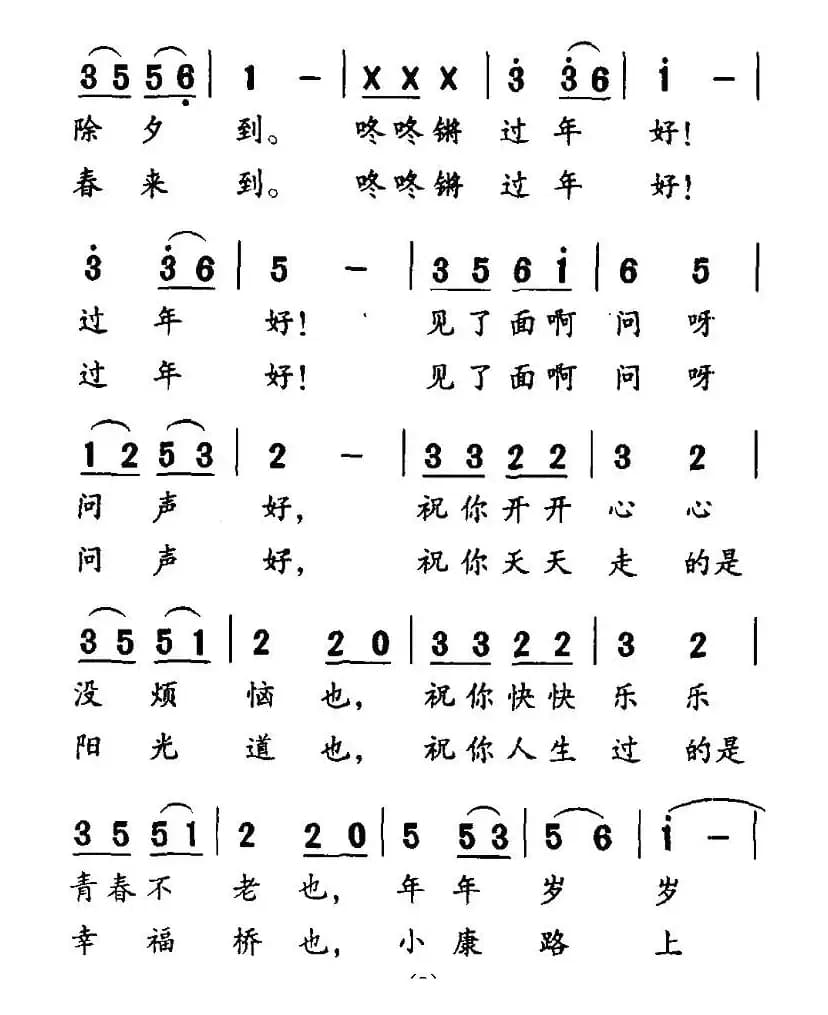 3 5 5 6 | 1 – | X X X | 3 3 6 | i – |
除夕到。咚咚锵过年好!
春来到。咚咚锵过年好!
3 3 6 | 5 – | 3 5 6 i | 6 5 |
过年好! 见了面啊问呀
过年好! 见了面啊问呀
1 2 5 3 | 2 – | 3 3 2 2 | 3 2 |
问声好, 祝你开开心心
问声好, 祝你天天走的是
3 5 5 1 | 2 2 0 | 3 3 2 2 | 3 2 |
没烦恼也, 祝你快快乐乐
阳光道也, 祝你人生过的是
3 5 5 1 | 2 2 0 | 5 5 3 | 5 6 | i – |
青春不老也, 年年岁岁
幸福桥也, 小康路上